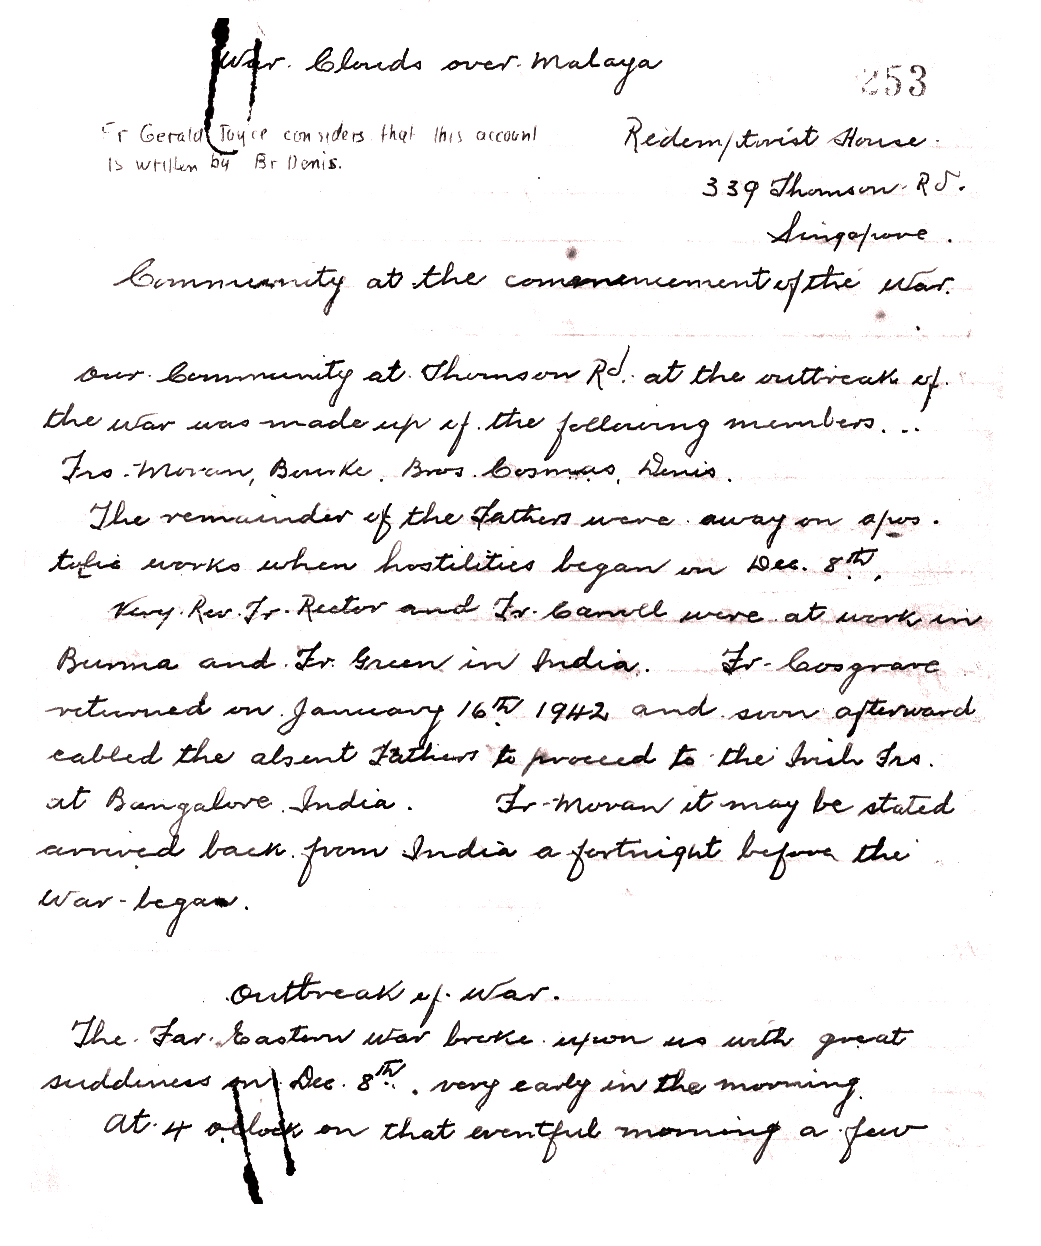 War Clouds over Malaya
253
Fr Gerald Joyce considers that this account
is written by Br Denis.
Redemptorist House.
339 Thomson Rd.
Singapore.
Community at the commencement of the War.
Our Community at Thomson Rd. at the outbreak of
the War was made up of the following members...
Frs. Moran, Bourke. Bros. Cosmas, Denis.
The remainder of the Fathers were away on apos-
tolic works when hostilities began on Dec. 8th.
Very Rev. Fr. Rector and Fr. Carroll were at work in
Burma and Fr. Green in India. Fr. Cosgrave
returned on January 16th 1942 and soon afterward
cabled the absent Fathers to proceed to the Irish Frs.
at Bangalore India. Fr. Moran it may be stated
arrived back from India a fortnight before the
War began.
Outbreak of War.
The Far Eastern War broke upon us with great
suddeness on Dec. 8th. very early in the morning.
At 4 oclock on that eventful morning a few